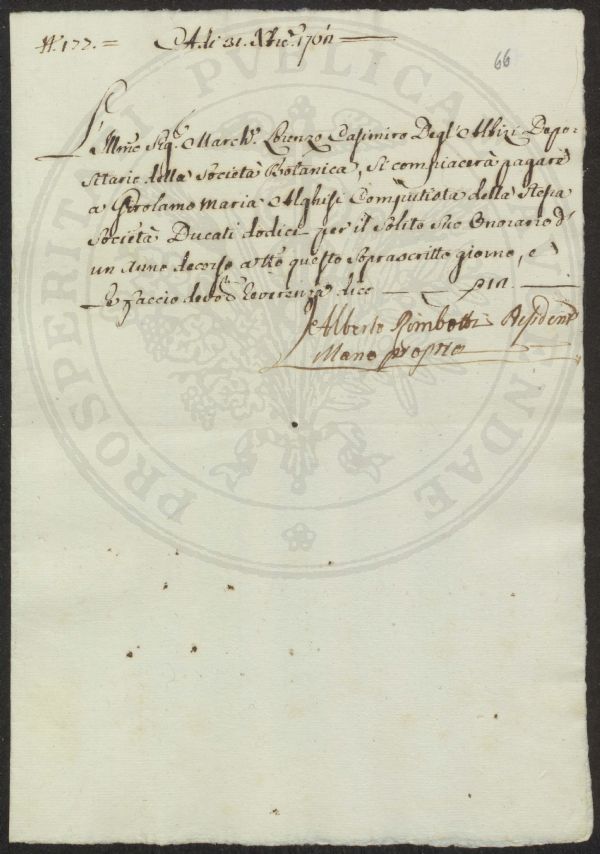 N. 177. =
A di 31. Xbre. 1761
66
L'Illmo Sigr. Marche. Lorenzo Casimiro Degl' Albizi Depo-
sitario della Società Botanica, si compiacerà pagare
a Girolamo Maria Alghisi Computista della stessa
Società Ducati dodici per il solito suo Onorario d'
un Anno decorso a tto questo soprascritto giorno, e
le faccio devota Reverenza dico
Alberto Rimbotti Presidente
Mano propria
PROSPERITATI PVBLICAE